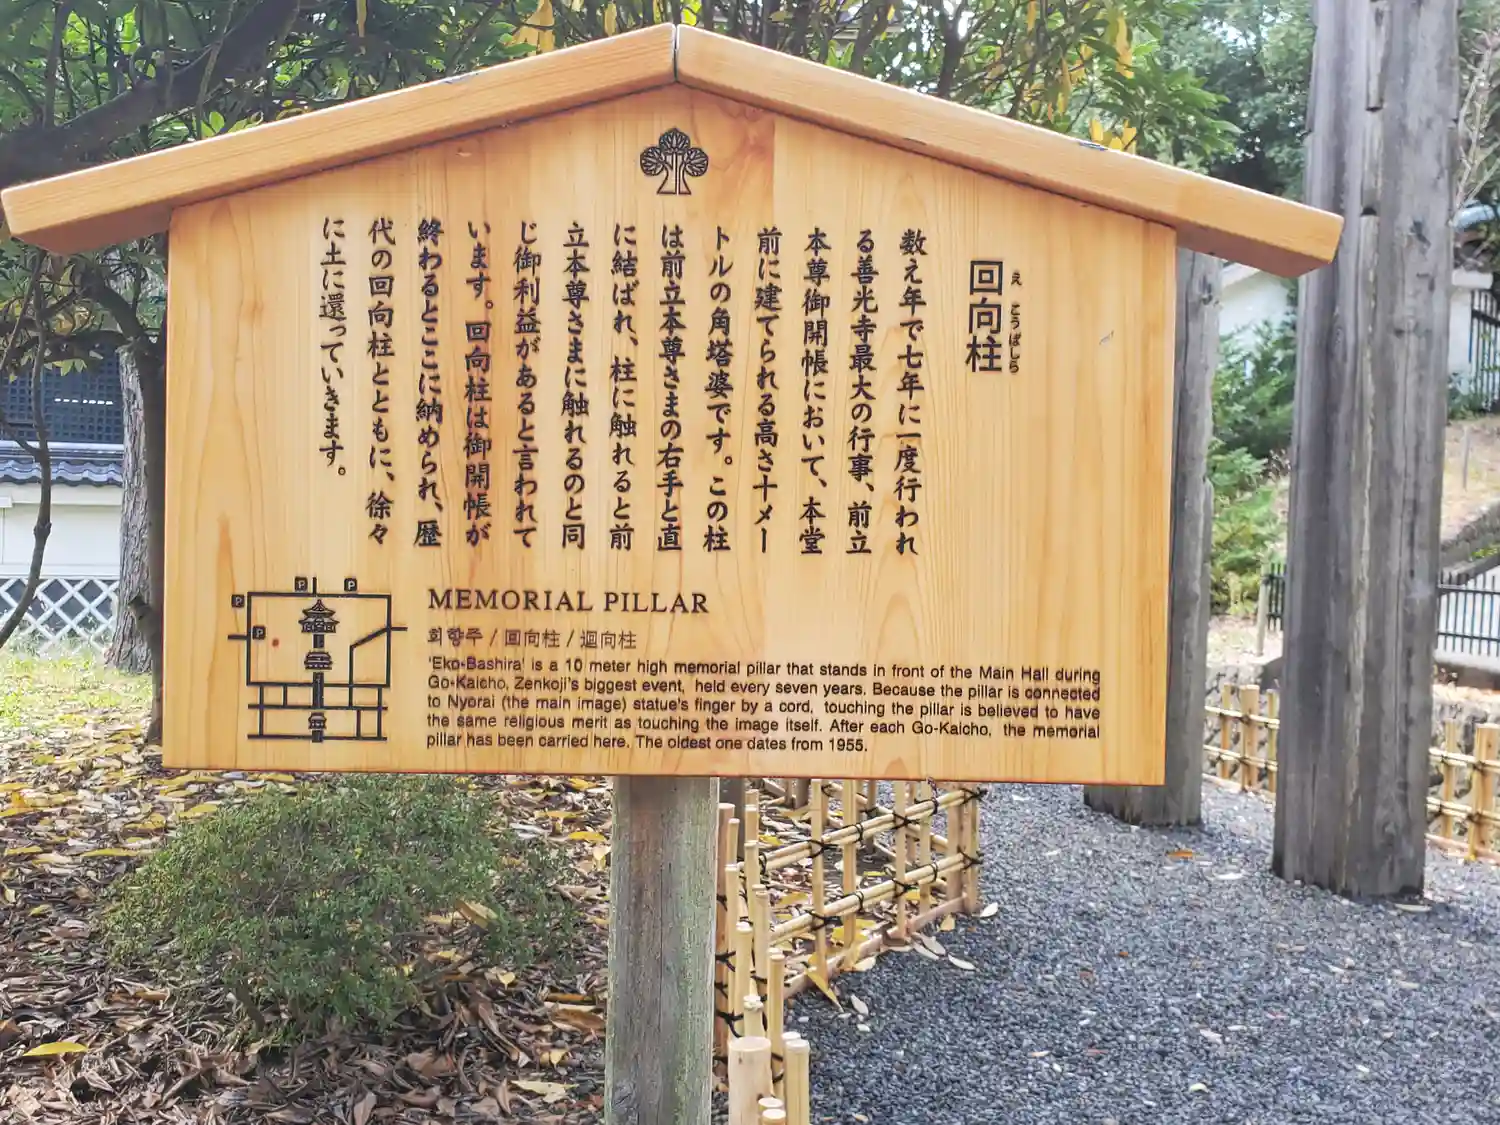 回向柱
えこうばしら
数え年で七年に一度行われ
る善光寺最大の行事、前立
本尊御開帳において、本堂
前に建てられる高さ十メー
トルの角塔婆です。この柱
は前立本尊さまの右手と直
に結ばれ、柱に触れると前
立本尊さまに触れるのと同
じ御利益があると言われて
います。回向柱は御開帳が
終わるとここに納められ、歴
代の回向柱とともに、徐々
に土に還っていきます。
MEMORIAL PILLAR
회향주 / 回向柱 / 迴向柱
'Eko-Bashira' is a 10 meter high memorial pillar that stands in front of the Main Hall during
Go-Kaicho, Zenkoji's biggest event, held every seven years. Because the pillar is connected
to Nyorai (the main image) statue's finger by a cord, touching the pillar is believed to have
the same religious merit as touching the image itself. After each Go-Kaicho, the memorial
pillar has been carried here. The oldest one dates from 1955.
P
P
P
P